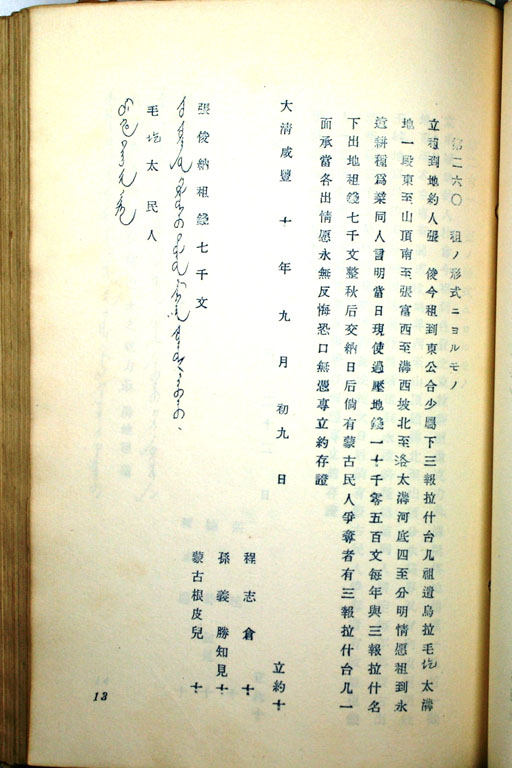 第二六〇 租ノ形式ニヨルモノ
立租到地約人張 俊今租到東公合少屬下三報拉什台几祖遺烏拉毛圪太溝
地一段東至山頂南至張富西至溝西坡北至洛太溝河底四至分明情愿租到永
遠耕種爲業同人言明當日現使過壓地錢一十千零五百文每年與三報拉什名
下出地租錢七千文整秋后交納日后倘有蒙古民人爭奪者有三報拉什台几一
面承當各出情愿永無反悔恐口無憑專立約存證
大清咸豐十年九月初九日
立約十
程志倉 十
孫義勝知見 十
蒙古根皮兒 十
張俊納租錢七千文
毛圪太民人
13